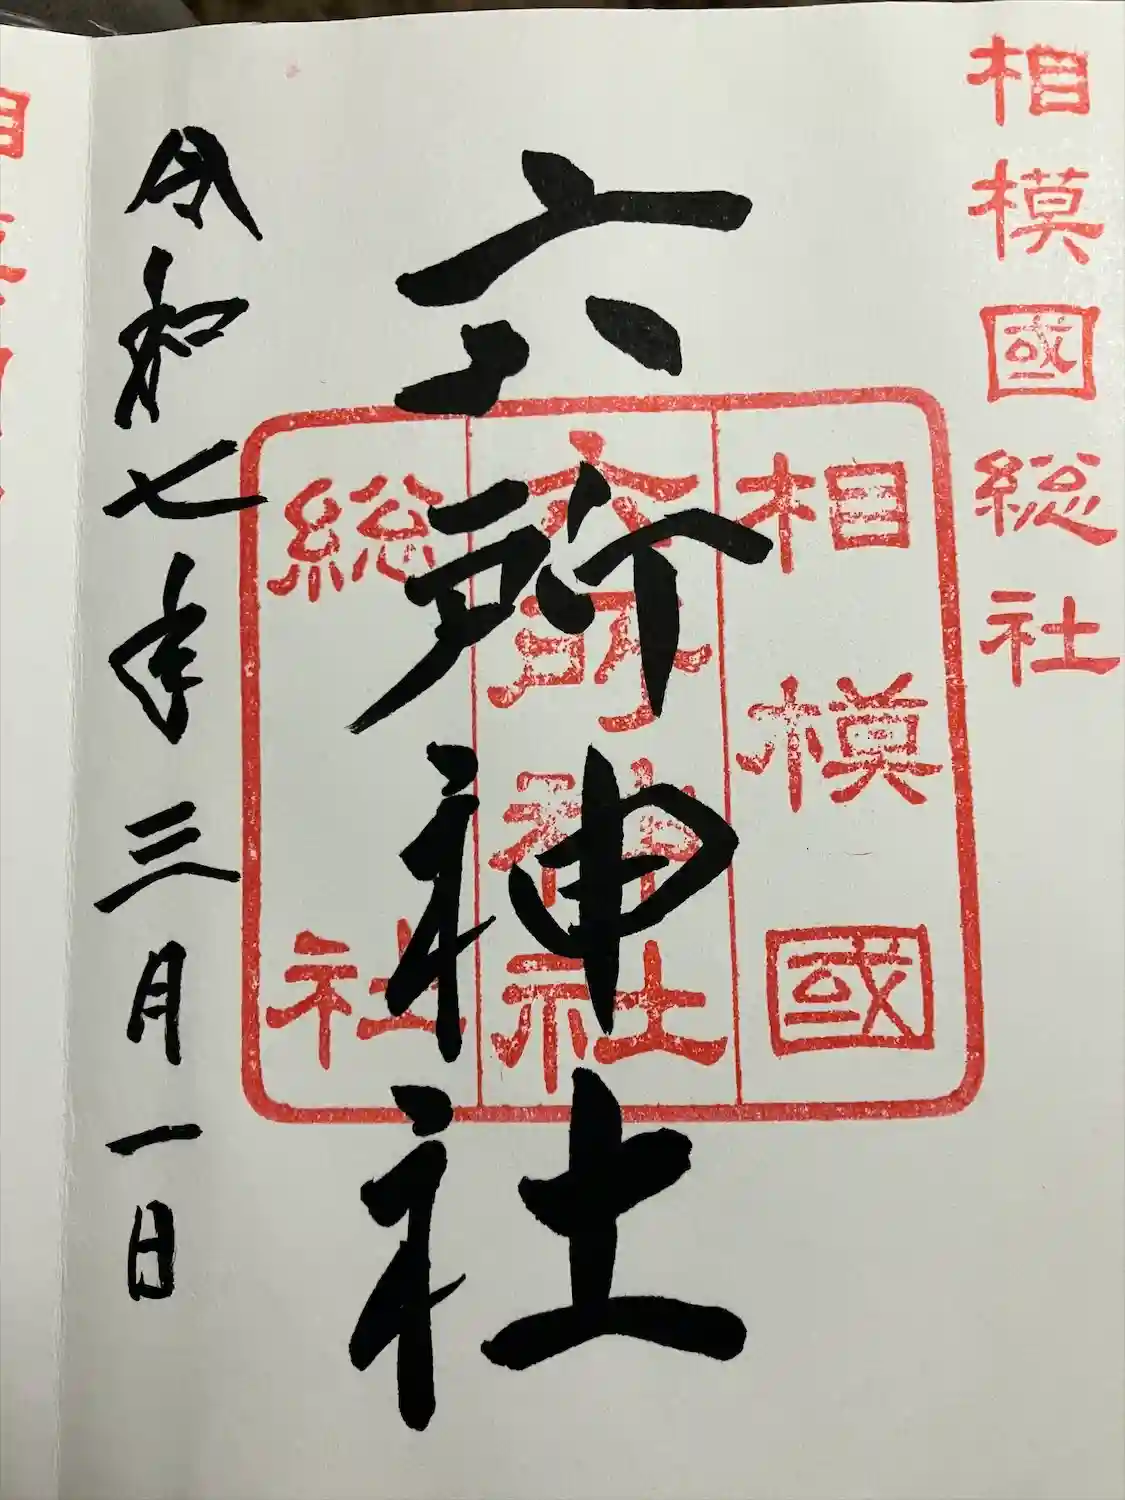 相模國総社
相模國
六所神社
総社
六所神社
令和七年三月一日